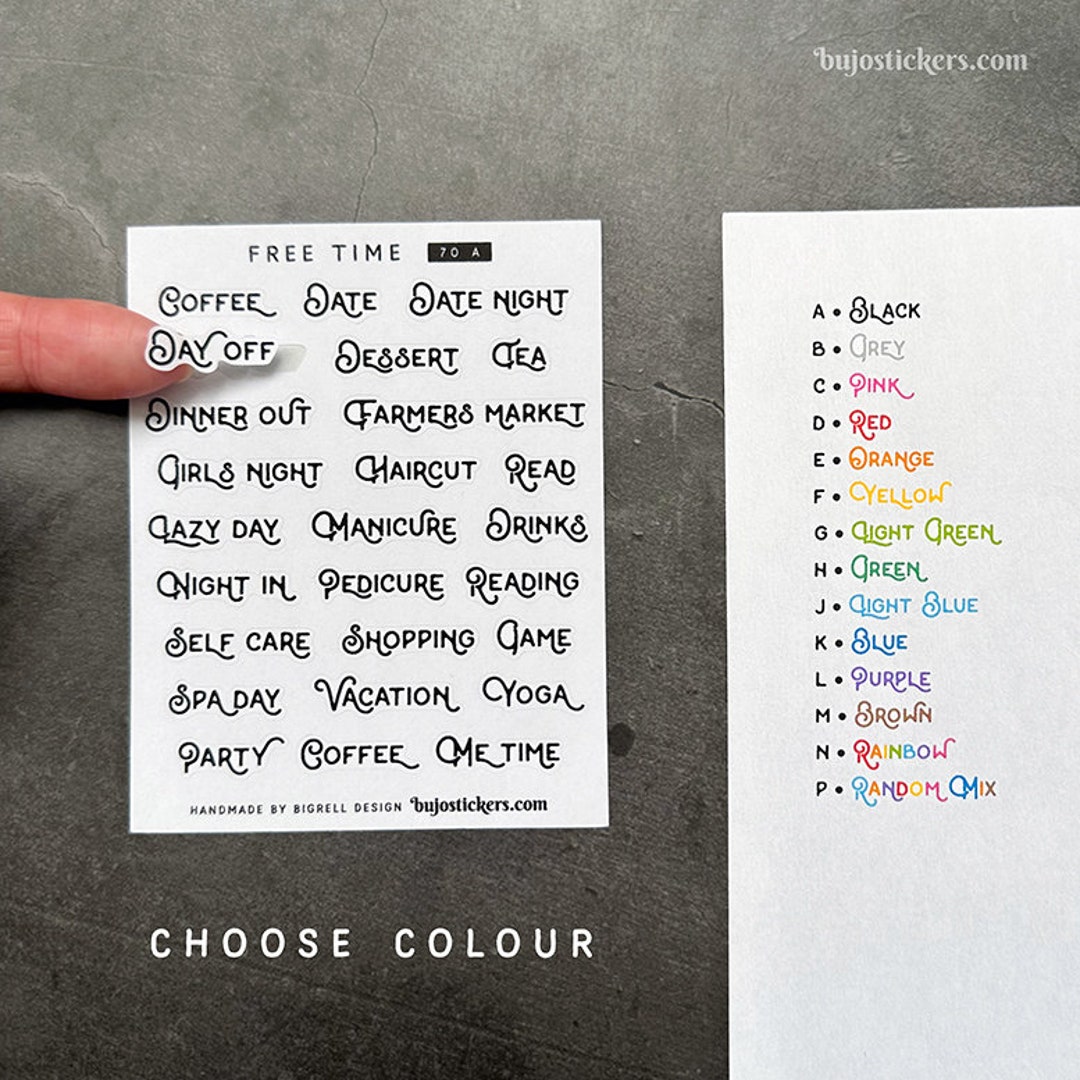 bujostickers.com
FREE TIME 70 A
COFFEE DATE DATE NIGHT
DAY OFF DESSERT TEA
DINNER OUT FARMERS MARKET
GIRLS NIGHT HAIRCUT READ
LAZY DAY MANICURE DRINKS
NIGHT IN PEDICURE READING
SELF CARE SHOPPING GAME
SPA DAY VACATION YOGA
PARTY COFFEE ME TIME
HANDMADE BY BIGRELL DESIGN bujostickers.com
A • BLACK
B • GREY
C • PINK
D • RED
E • ORANGE
F • YELLOW
G • LIGHT GREEN
H • GREEN
J • LIGHT BLUE
K • BLUE
L • PURPLE
M • BROWN
N • RAINBOW
P • RANDOM MIX
CHOOSE COLOUR